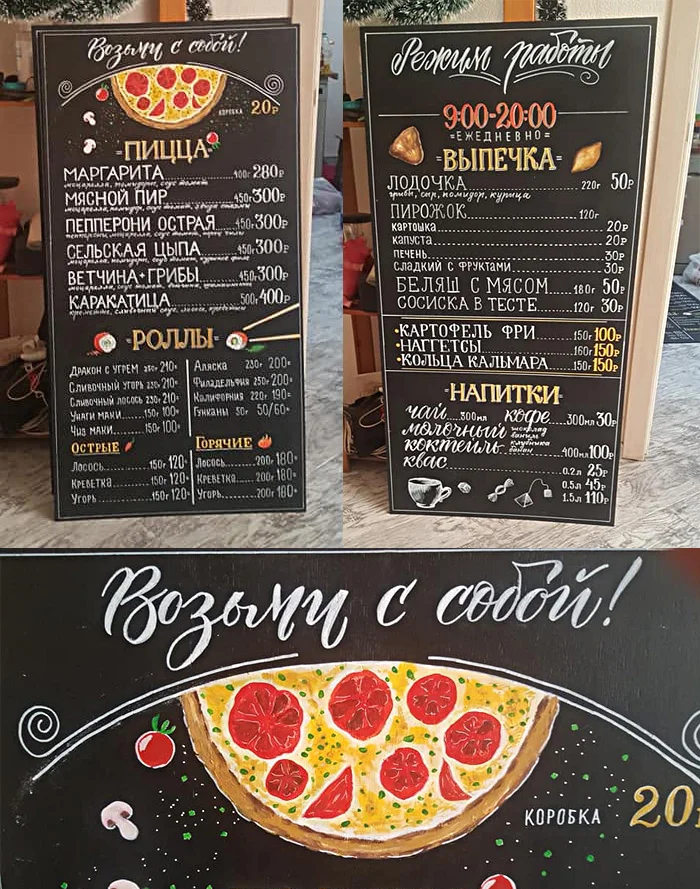 Возьми с собой!
КОРОБКА 20р
=ПИЦЦА=
МАРГАРИТА 400г 280р
моцарелла, помидоры, соус томат
МЯСНОЙ ПИР 450г 300р
ПЕППЕРОНИ ОСТРАЯ 450г 300р
СЕЛЬСКАЯ ЦЫПА 450г 300р
ВЕТЧИНА+ГРИБЫ 450г 300р
КАРАКАТИЦА 500г 400р
-РОЛЛЫ-
Дракон с угрем 250г 210р
Сливочный угорь 220г 210р
Сливочный лосось 230г 210р
Унаги маки 150г 100р
Чиз маки 150г 100р
Аляска 230г 200р
Филадельфия 250г 200р
Калифорния 220г 190р
Гункани 50г 50/60р
Острые
Лосось 150г 120р
Креветка 150г 120р
Угорь 150г 120р
Горячие
Лосось 200г 180р
Креветка 200г 180р
Угорь 200г 180р
Режим работы
9:00-20:00
=ЕЖЕДНЕВНО=
=ВЫПЕЧКА=
ЛОДОЧКА 220г 50р
грибы, сыр, помидор, курица
ПИРОЖОК 120г
КАРТОШКА 20р
КАПУСТА 20р
ПЕЧЕНЬ 30р
СЛАДКИЙ С ФРУКТАМИ 30р
БЕЛЯШ С МЯСОМ 180г 50р
СОСИСКА В ТЕСТЕ 120г 30р
•КАРТОФЕЛЬ ФРИ 150г 100р
•НАГГЕТСЫ 160г 150р
•КОЛЬЦА КАЛЬМАРА 150г 150р
=НАПИТКИ=
чай 300мл кофе 300мл 30р
молочный
коктейль 400мл 100р
шоколад
ваниль
клубника
банан
квас 0.2л 25р
0.5л 45р
1.5л 110р
Возьми с собой!
КОРОБКА 20